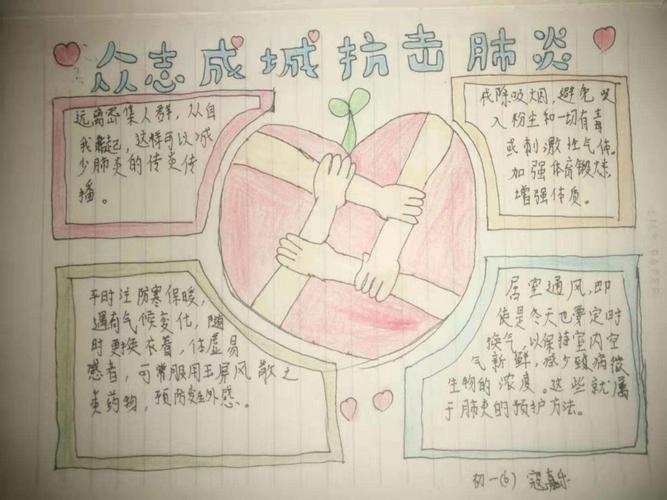 众志成城抗击肺炎
远离密集人群，从自
我做起，这样可以减
少肺炎的传染传
播。
戒除吸烟，避免吸
入粉尘和一切有毒
或刺激性气体，
加强体育锻炼，
增强体质。
平时注防寒保暖，
遇有气候变化，随
时更换衣着，体虚易
感者，可常服用玉屏风散之
类药物，预防发生外感。
居室通风，即
使是冬天也要定时
换气，以保持室内空
气新鲜，减少致病微
生物的浓度。这些就属
于肺炎的预护方法。
初一(6) 寇嘉乐